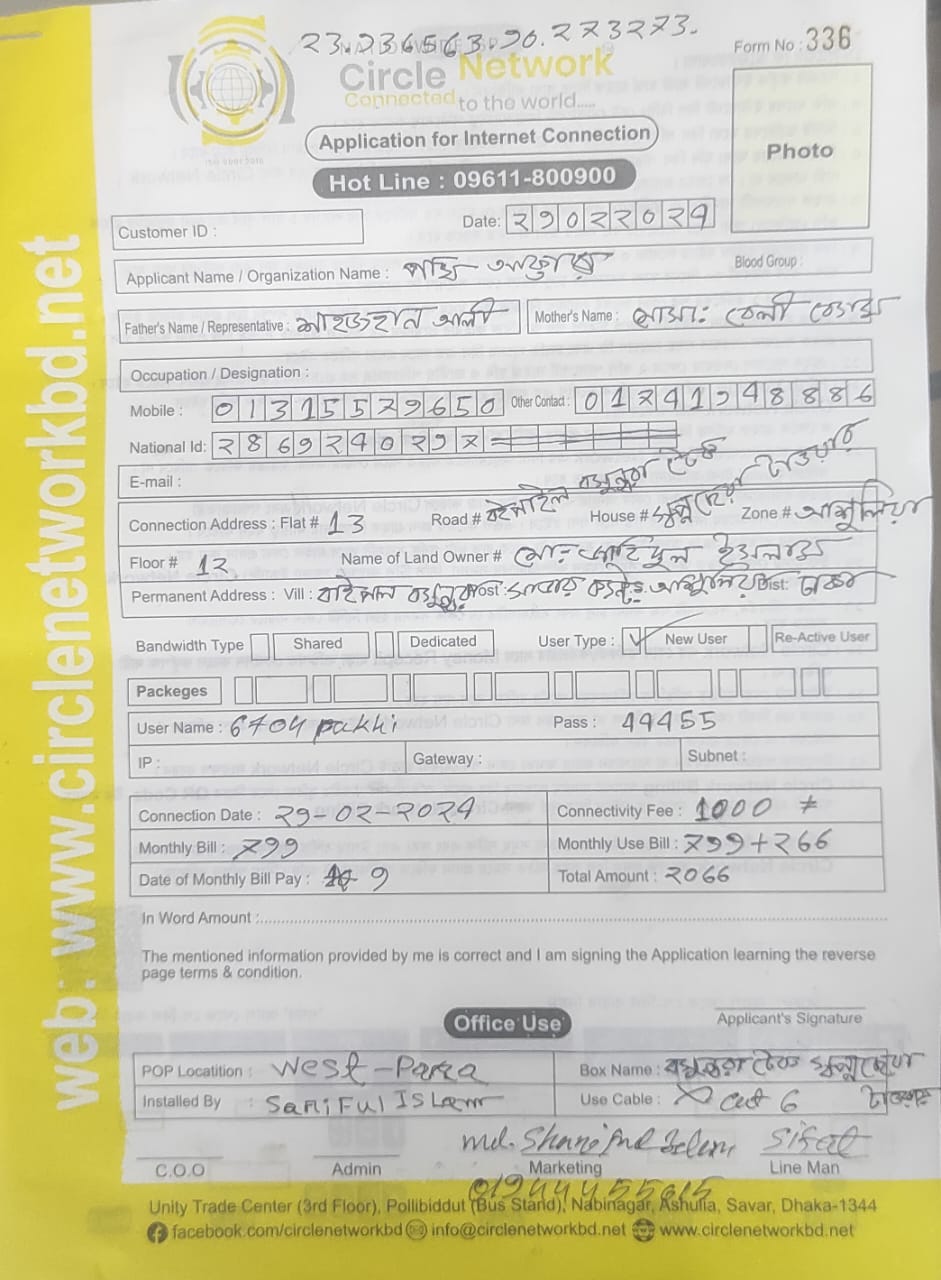 23.236563.90.273273.
Form No : 336
Circle Network
Connected to the world.....
Application for Internet Connection
Photo
Hot Line : 09611-800900
Customer ID :
Date: 29022024
Applicant Name / Organization Name : পাখি আক্তার
Blood Group :
Father's Name / Representative : শাহজাহান আলী
Mother's Name : মোসা: বেলী বেগম
Occupation / Designation :
Mobile : 01315529650 Other Contact : 01741948886
National Id: 2869240297
E-mail :
Connection Address : Flat # 13 Road # বাইপাইল বসুন্ধরা টেক House # Zone # আশুলিয়া
Floor # 12 Name of Land Owner #
Permanent Address : Vill : বাইপাইল Post: সাভার আশুলিয়া Dist: ঢাকা
Bandwidth Type Shared Dedicated User Type : ✓ New User Re-Active User
Packeges
User Name : 6704 pakhi Pass : 44455
IP : Gateway : Subnet :
Connection Date : 29-02-2024 Connectivity Fee : 1000
Monthly Bill : 799 Monthly Use Bill : 799+266
Date of Monthly Bill Pay : 9 Total Amount : 2066
In Word Amount :
The mentioned information provided by me is correct and I am signing the Application learning the reverse
page terms & condition.
Applicant's Signature
Office Use
POP Locatition : West-Para Box Name : বসুন্ধরা টেক
Installed By : Sariful Islam Use Cable : Cat 6
Md. Shariful Islam Sifat
C.O.O Admin Marketing Line Man
Unity Trade Center (3rd Floor), Pollibiddut (Bus Stand), Nabinagar, Ashulia, Savar, Dhaka-1344
facebook.com/circlenetworkbd info@circlenetworkbd.net www.circlenetworkbd.net
web: www.circlenetworkbd.net